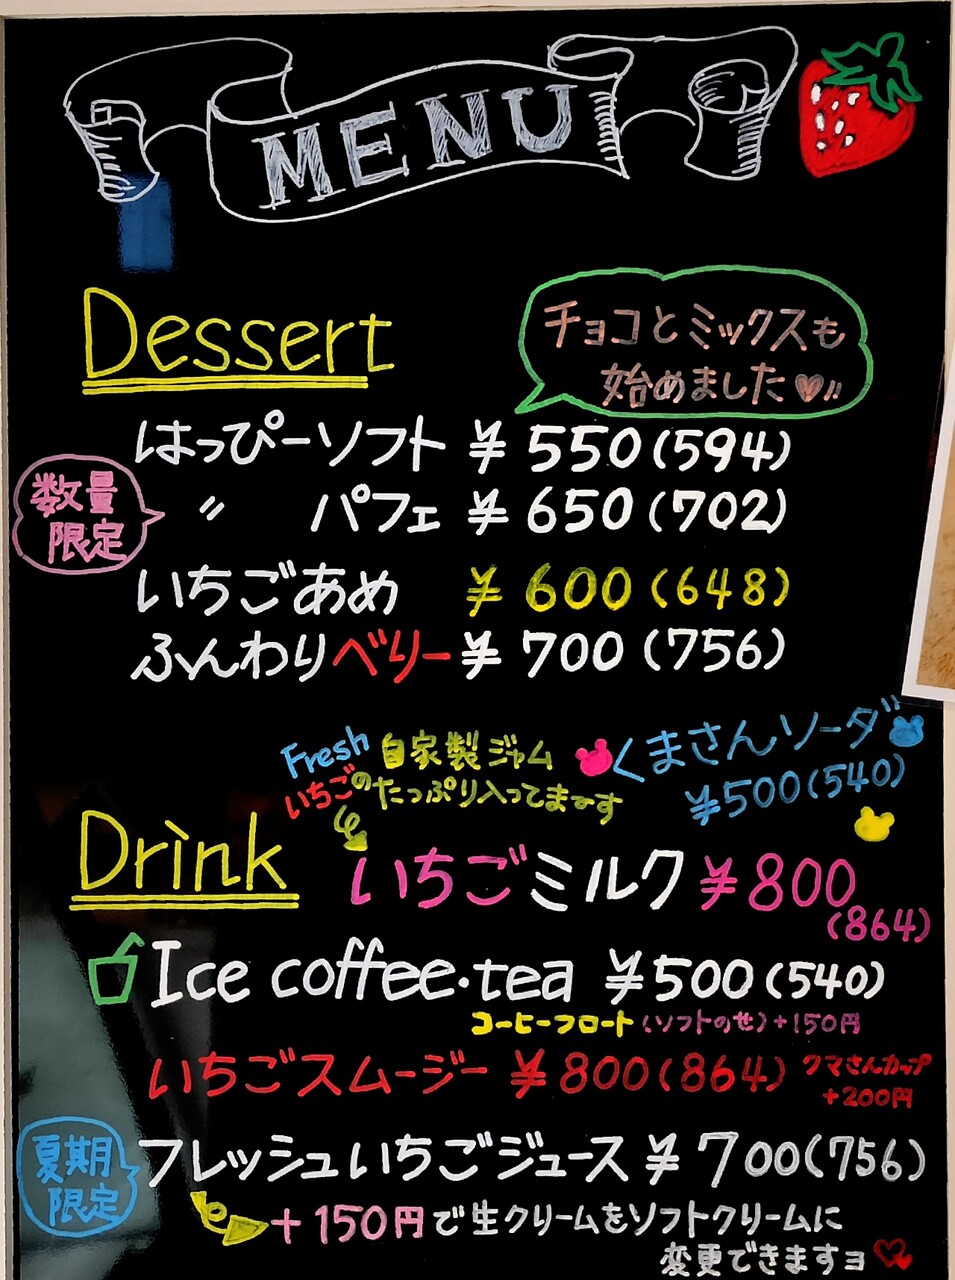 MENU
Dessert
チョコとミックスも
始めました
はっぴーソフト ¥550(594)
数量
限定
〃 パフェ ¥650(702)
いちごあめ ¥600(648)
ふんわりベリー ¥700(756)
くまさんソーダ
¥500(540)
Fresh 自家製ジャム
いちごの たっぷり入ってまーす
Drink
いちごミルク ¥800
(864)
Ice coffee・tea ¥500(540)
コーヒーフロート(ソフトのせ)+150円
いちごスムージー ¥800(864)
クマさんカップ
+200円
夏期
限定
フレッシュいちごジュース ¥700(756)
+150円で生クリームをソフトクリームに
変更できますヨ